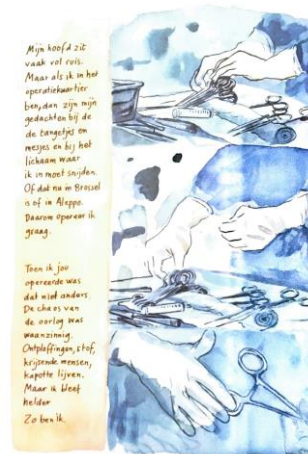 Mijn hoofd zit
vaak vol ruis.
Maar als ik in het
operatiekwartier
ben, dan zijn mijn
gedachten bij de
de tangetjes en
mesjes en bij het
lichaam waar
ik in moet snijden.
Of dat nu in Brussel
is of in Aleppo.
Daarom opereer ik
graag.
Toen ik jou
opereerde was
dat niet anders.
De chaos van
de oorlog was
waanzinnig.
Ontploffingen, stof,
krijsende mensen,
kapotte lijven.
Maar ik bleef
helder
Zo ben ik.